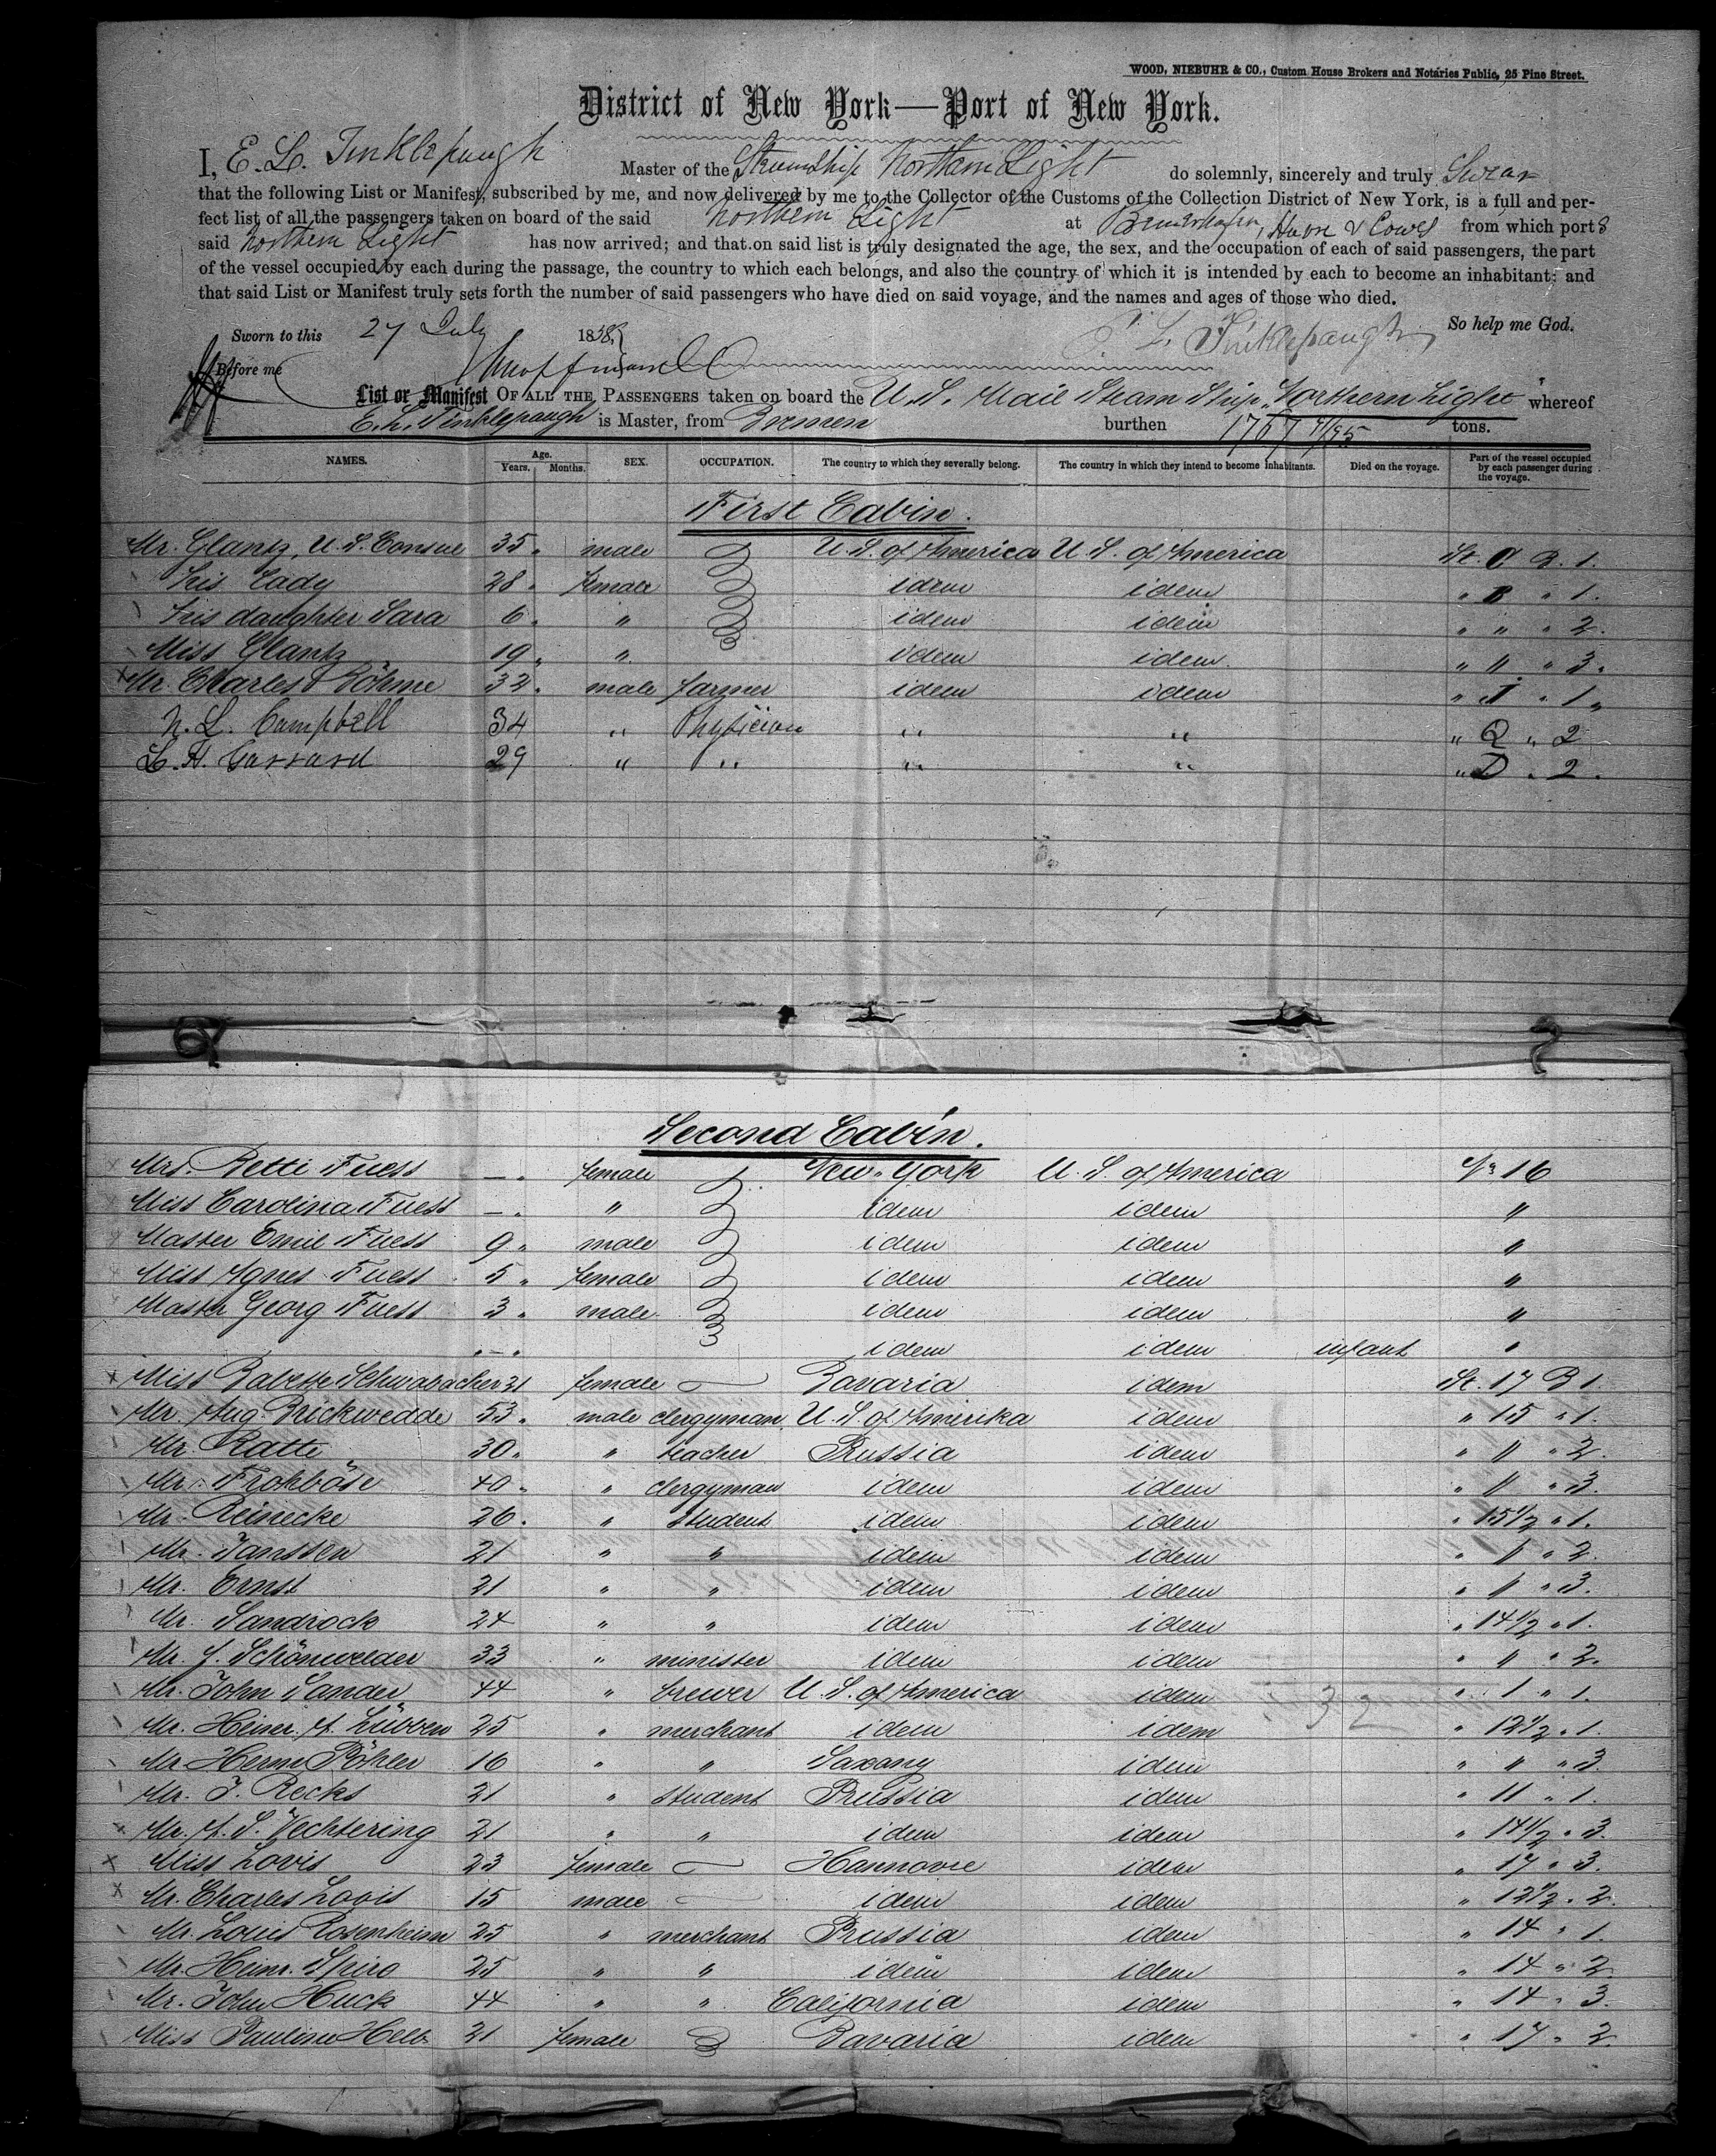 WOOD, NIEBUHR & CO., Custom House Brokers and Notaries Public, 25 Pine Street.
District of New York—Port of New York.
I, E. L. Tinklepaugh Master of the Steamship Northern Light do solemnly, sincerely and truly Swear
that the following List or Manifest, subscribed by me, and now delivered by me to the Collector of the Customs of the Collection District of New York, is a full and per-
fect list of all the passengers taken on board of the said Northern Light at Bremerhafen, Havre & Cowes from which port s
said Northern Light has now arrived; and that on said list is truly designated the age, the sex, and the occupation of each of said passengers, the part
of the vessel occupied by each during the passage, the country to which each belongs, and also the country of which it is intended by each to become an inhabitant: and
that said List or Manifest truly sets forth the number of said passengers who have died on said voyage, and the names and ages of those who died.
So help me God.
Sworn to this 27 July 185 E. L. Tinklepaugh
Before me
List or Manifest OF ALL THE PASSENGERS taken on board the U. S. Mail Steam Ship Northern Light whereof
E. L. Tinklepaugh is Master, from Bremen burthen 1767 tons.
NAMES. Age. Years. Months. SEX. OCCUPATION. The country to which they severally belong. The country in which they intend to become inhabitants. Died on the voyage. Part of the vessel occupied by each passenger during the voyage.
First Cabin.
Mr. Glantz, U. S. Consul 35 male U. S. of America U. S. of America St. C B. 1.
his Lady 28 female idem idem " B " 1.
his daughter Sara 6 " idem idem " " " 2.
Miss Glantz 19 " idem idem. " " " 3.
Mr. Charles Böhme 32 male farmer idem idem " J " 1
N. L. Campbell 34 " Physician " " " Q " 2
L. H. Garrard 29 " " " " " D " 2.
Second Cabin.
Mrs. Betti Fuess — female New-York U. S. of America No 16
Miss Carolina Fuess — " idem idem "
Master Emil Fuess 9 male idem idem "
Miss Agnes Fuess 5 female idem idem "
Master Georg Fuess 3 male idem idem "
" — " idem idem infant "
Miss Babette Schwabacher 21 female — Bavaria idem St. 17 B 1.
Mr. Aug. Brickwedde 53 male clergyman U. S. of Amerika idem " 15 " 1.
Mr. Ratte 30 " teacher Prussia idem " " " 2.
Mr. Frohböse 40 " clergyman idem idem " " " 3.
Mr. Reinecke 26 " student idem idem " 15½ " 1.
Mr. Janssen 21 " " idem idem " " " 2.
Mr. Ernst 21 " " idem idem " " " 3.
Mr. Sandrock 24 " " idem idem " 14½ " 1.
Mr. J. Schönwelder 33 " minister idem idem " " " 2.
Mr. John Sander 44 " brewer U. S. of America idem " 1 " 1.
Mr. Heinr. A. Lübben 25 " merchant idem idem 32 " 12½ " 1.
Mr. Herm. Pöhler 16 " " Saxony idem " " " 3.
Mr. J. Recks 21 " student Prussia idem " 11 " 1.
Mr. A. S. Vechtering 21 " " idem idem " 14½ " 3.
Miss Lovis 23 female — Hannover idem " 17 " 3.
Mr. Charles Lovis 15 male — idem idem " 12½ " 2.
Mr. Louis Rosenheim 25 " merchant Prussia idem " 14 " 1.
Mr. Heinr. Spiro 25 " " idem idem " 14 " 2
Mr. John Huck 44 " " California idem " 14 " 3.
Miss Pauline Helb 21 female Bavaria idem " 17 " 2.